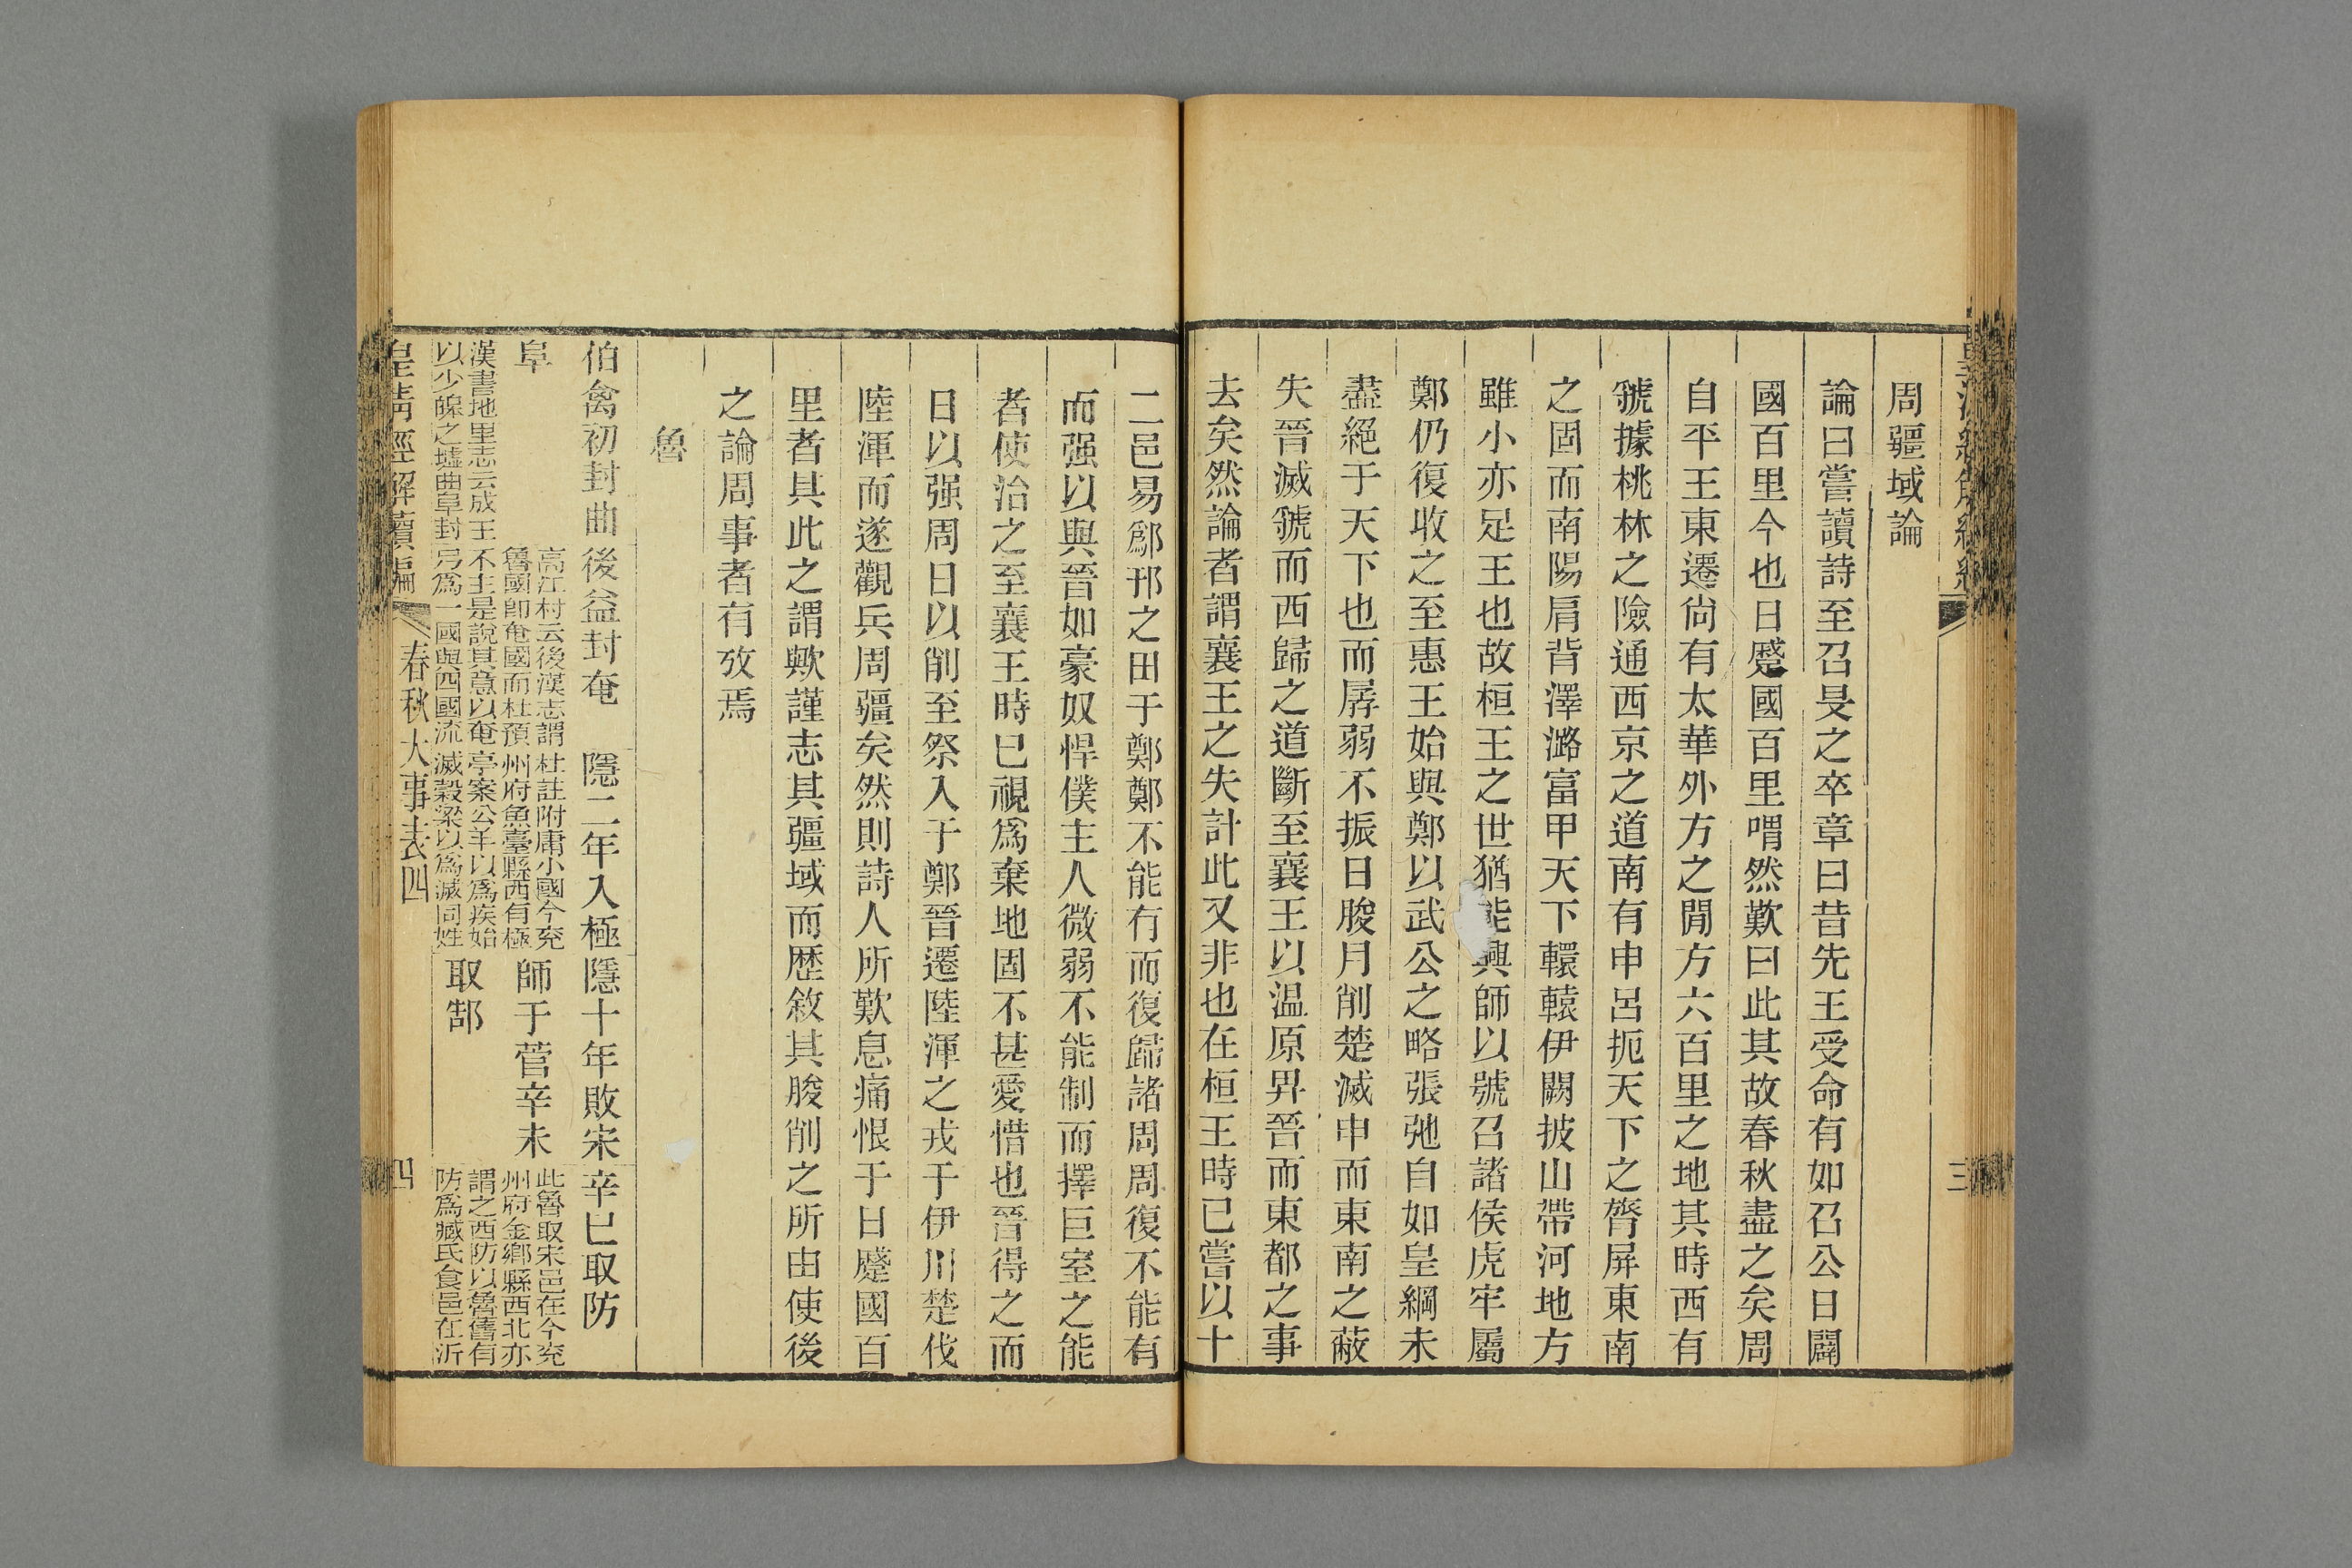 周疆域論
論曰嘗讀詩至召旻之卒章曰昔先王受命有如召公日闢
國百里今也日蹙國百里喟然歎曰此其故春秋盡之矣周
自平王東遷尙有太華外方之閒方六百里之地其時西有
虢據桃林之險通西京之道南有申呂扼天下之膂屏東南
之固而南陽肩背澤潞富甲天下轘轅伊闕披山帶河地方
雖小亦足王也故桓王之世猶能興師以號召諸侯虎牢屬
鄭仍復收之至惠王始與鄭以武公之略張弛自如皇綱未
盡絕于天下也而孱弱不振日朘月削楚滅申而東南之蔽
失晉滅虢而西歸之道斷至襄王以温原畀晉而東都之事
去矣然論者謂襄王之失計此又非也在桓王時已嘗以十
三
二邑易鄔邘之田于鄭鄭不能有而復歸諸周周復不能有
而强以與晉如豪奴悍僕主人微弱不能制而擇巨室之能
者使治之至襄王時已視爲棄地固不甚愛惜也晉得之而
日以强周日以削至祭入于鄭晉遷陸渾之戎于伊川楚伐
陸渾而遂觀兵周疆矣然則詩人所歎息痛恨于日蹙國百
里者其此之謂歟謹志其疆域而歷敘其朘削之所由使後
之論周事者有攷焉
魯
伯禽初封曲
阜
漢書地里志云成王
以少皞之墟曲阜封
後益封奄
高江村云後漢志謂
魯國卽奄國而杜預
不主是說其意以奄
另爲一國與四國流
隱二年入極
杜註附庸小國今兖
州府魚臺縣西有極
亭案公羊以爲疾始
滅穀梁以爲滅同姓
隱十年敗宋
師于菅辛未
取郜
辛巳取防
此魯取宋邑在今兖
州府金鄉縣西北亦
謂之西防以魯舊有
防爲臧氏食邑在沂
皇淸經解續編
春秋大事表四
四